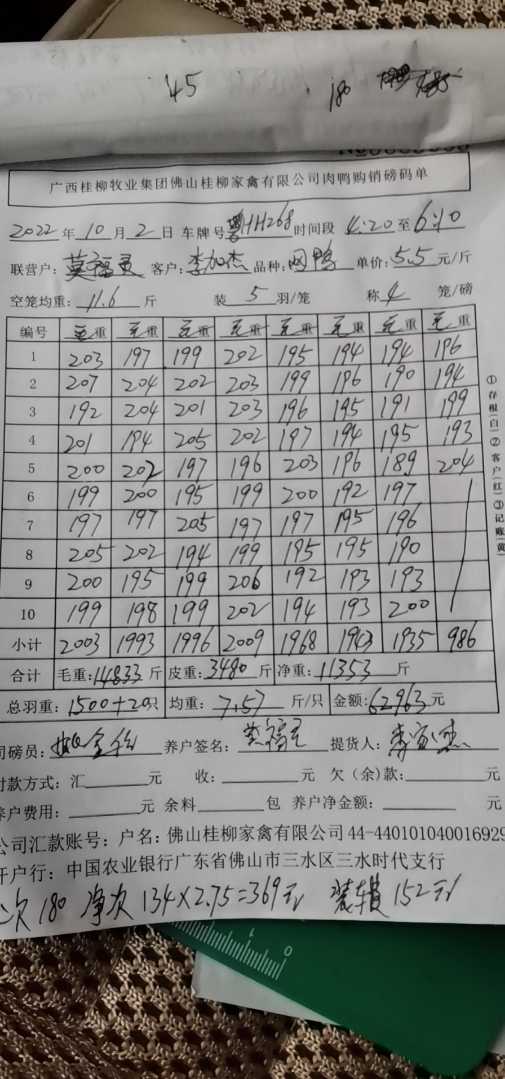 45 180
广西桂柳牧业集团佛山桂柳家禽有限公司肉鸭购销磅码单
2022年10月2日 车牌号粤HH268时间段4:20至6:10
联营户: 莫福灵 客户: 李加杰 品种: 网鸭 单价: 5.5元/斤
空笼均重: 11.6斤 装5羽/笼 称4笼/磅
编号 毛重 毛重 毛重 毛重 毛重 毛重 毛重 毛重
1 203 197 199 202 195 194 194 196
2 207 204 202 203 199 196 190 194
3 192 204 201 203 196 195 191 199
4 201 194 205 202 197 194 195 193
5 200 202 197 196 203 196 189 204
6 199 200 195 199 200 192 197
7 197 197 205 197 197 195 196
8 205 202 194 199 195 195 190
9 200 195 199 206 192 193 193
10 199 198 199 202 194 193 200
小计 2003 1993 1996 2009 1968 1943 1935 986
合计 毛重: 14833斤 皮重: 3480斤 净重: 11353斤
总羽重: 1500+20只 均重: 7.57斤/只 金额: 62963元
①存根(白)②客户(红)③记账(黄)
司磅员: 养户签名: 莫福灵 提货人:
付款方式: 汇 元 收: 元 欠(余)款: 元
养户费用: 元 余料 包 养户净金额: 元
公司汇款账号: 户名: 佛山桂柳家禽有限公司 44-440101040016929
开户行: 中国农业银行广东省佛山市三水区三水时代支行
次180 净次134×2.75=369元 装车费152元